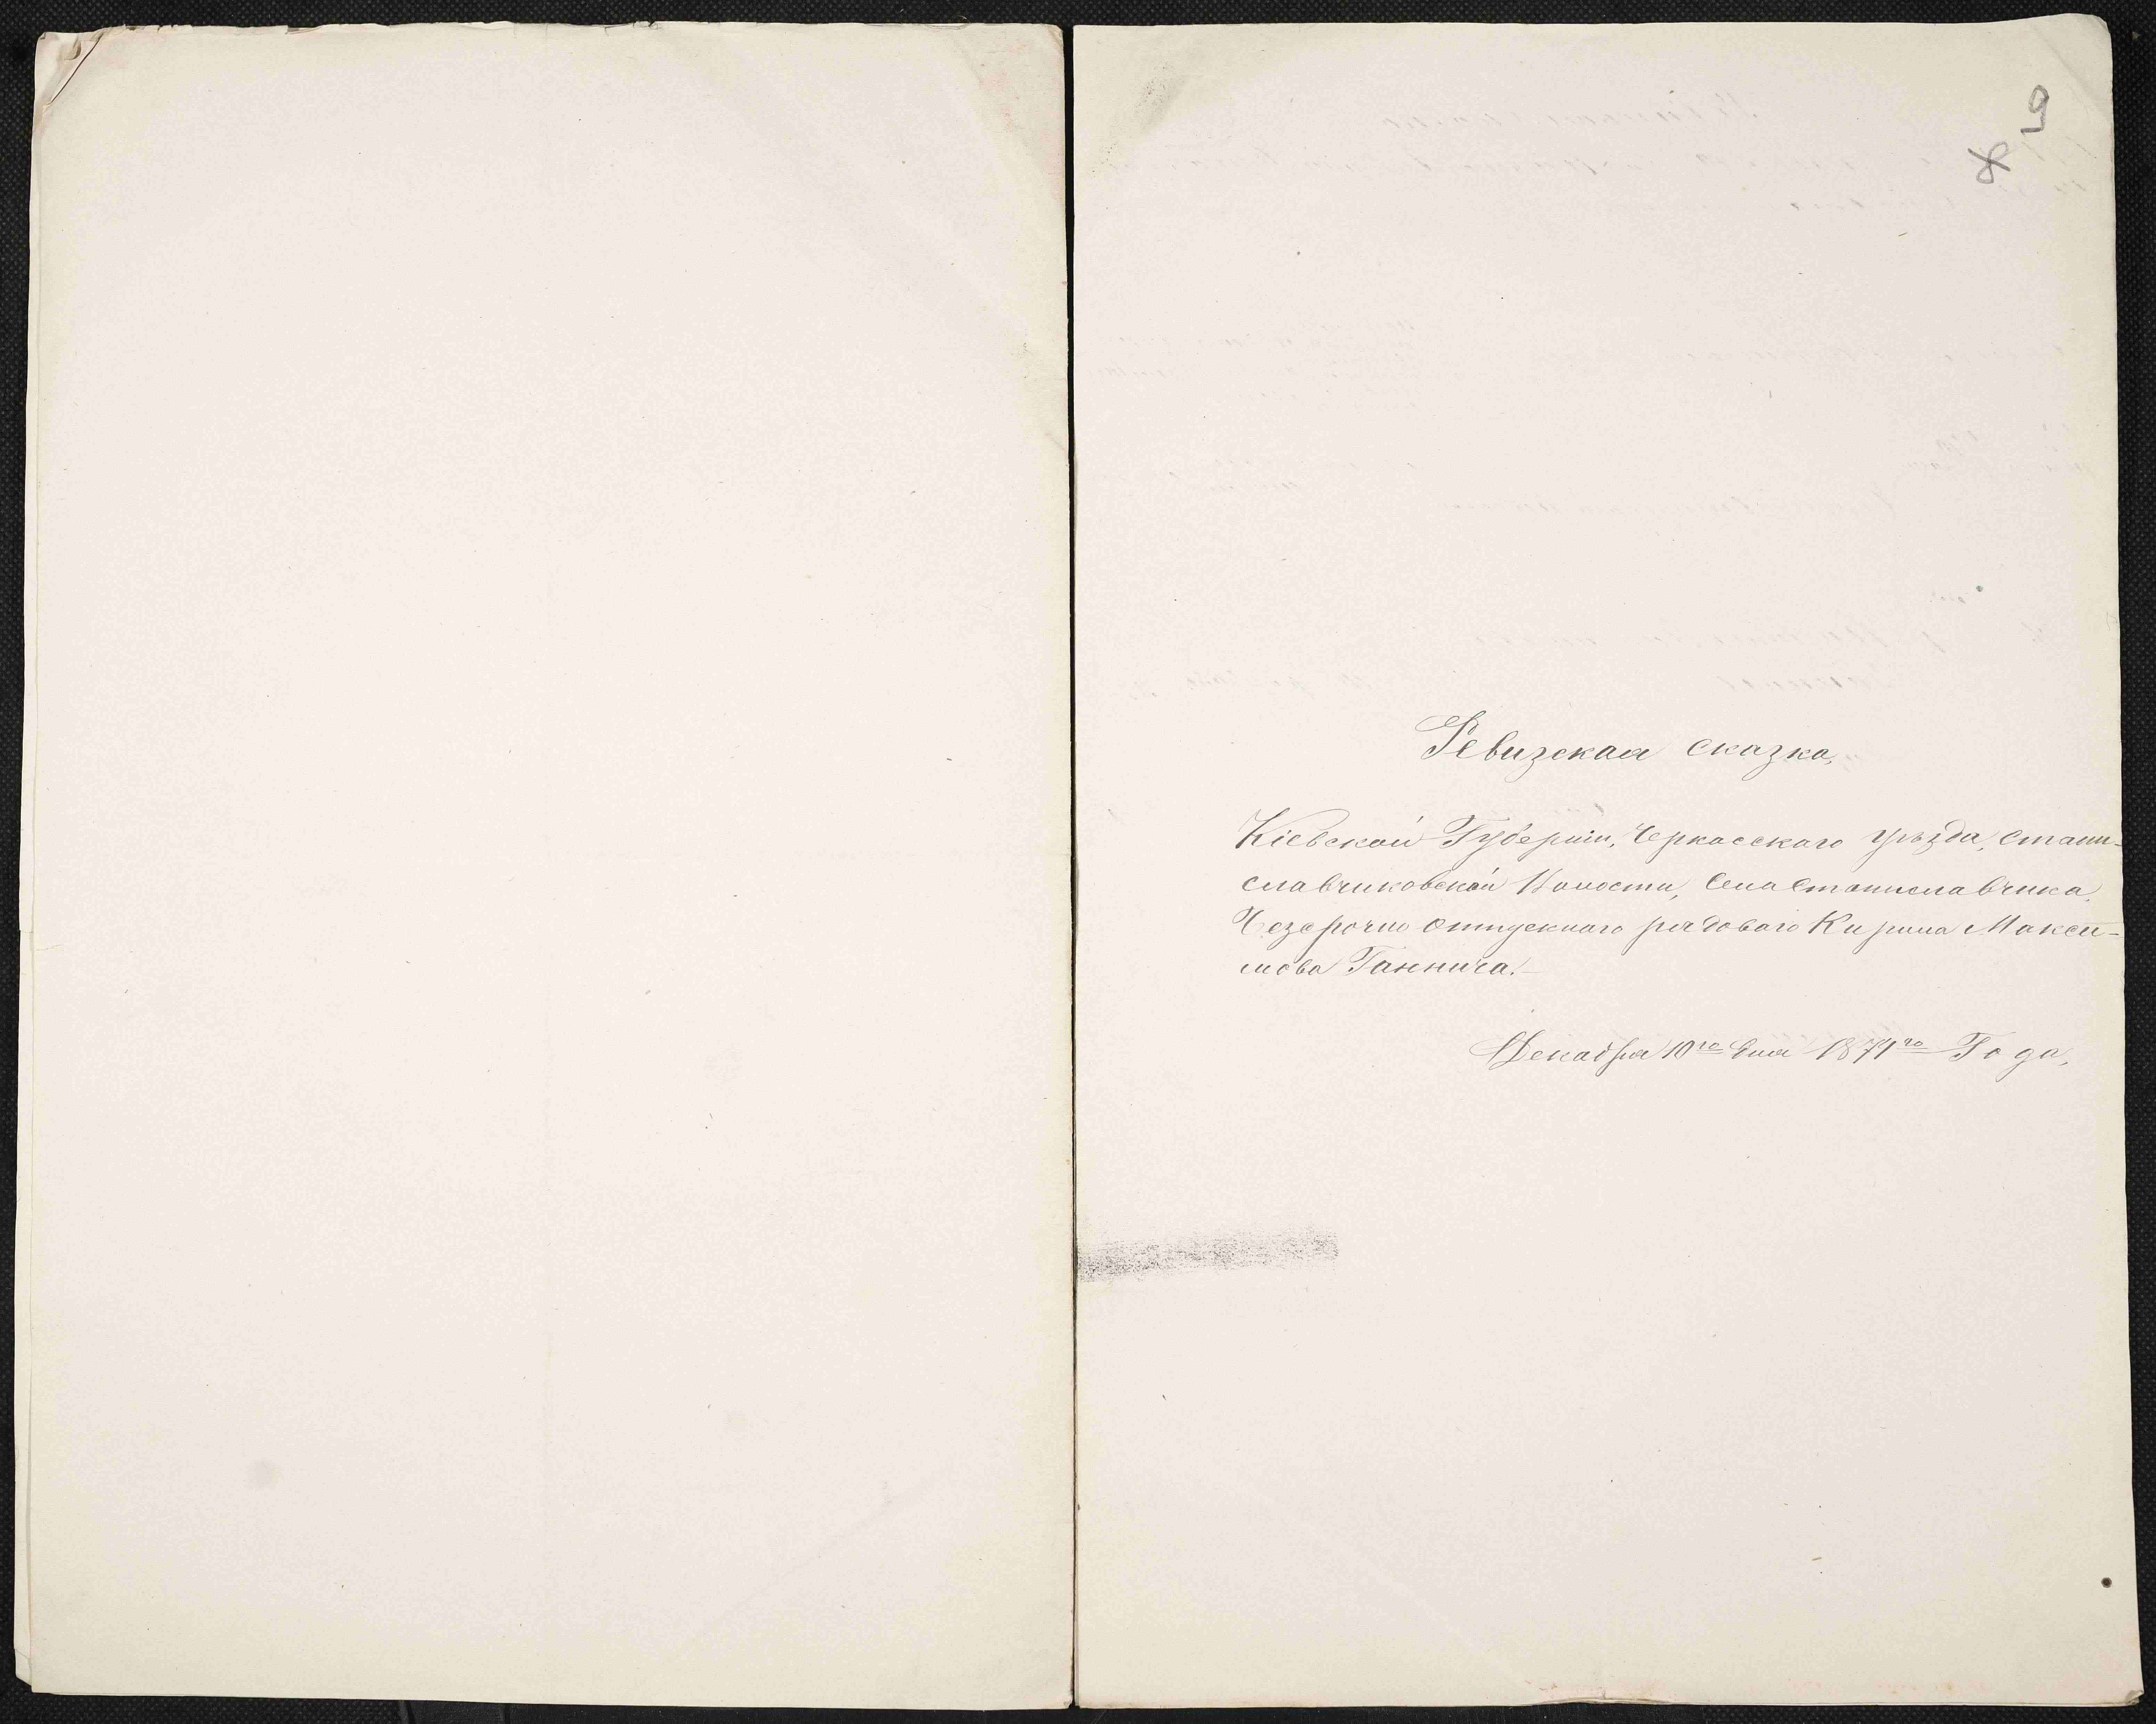 9
8
Ревизская сказка,
Кіевской Губерніи, Черкасскаго уѣзда, Стани-
славчиковской Волости, Села Станиславчика,
безсрочно отпускнаго рядоваго Кирила Макси-
мова Ганнича.
Декабря 10го дня 1874го Года,